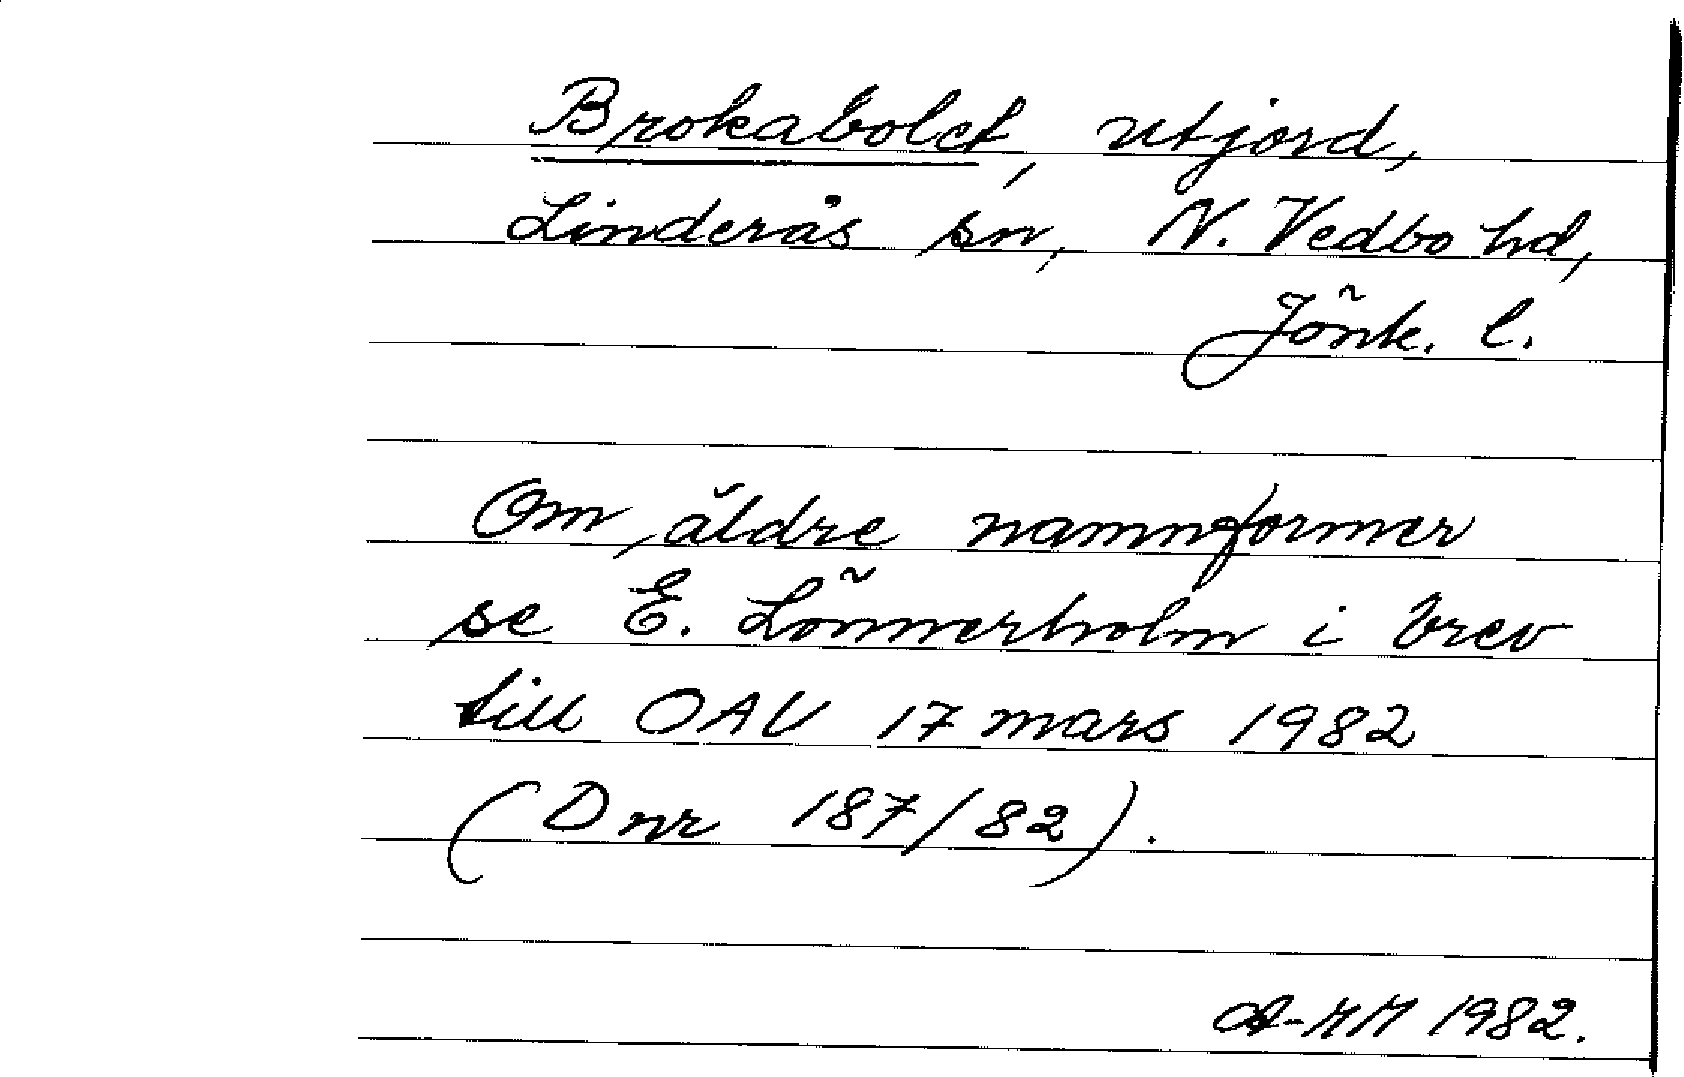 Brokabolet, utjord,
Linderås sn, N. Vedbo hd,
Jönk. l.
Om äldre namnformer
se E. Lönnerholm i brev
till OAU 17 mars 1982
(Dnr 187/82).
A-MM 1982.